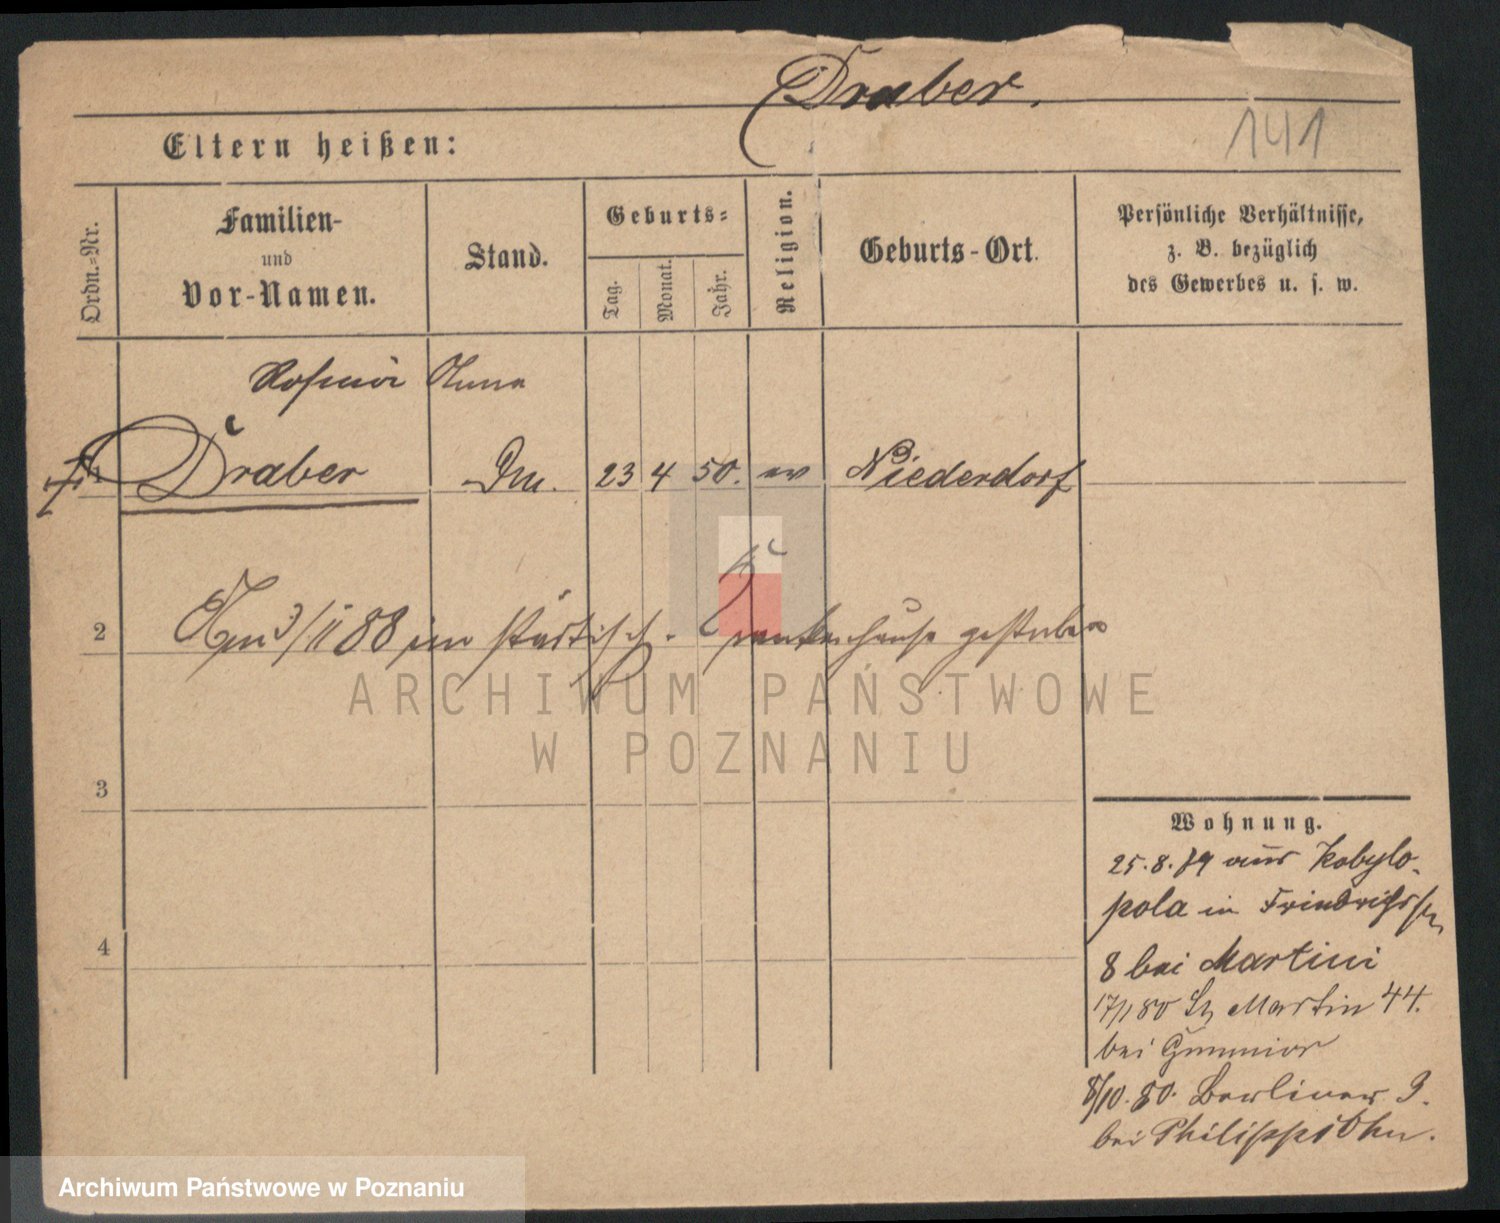 Draber.
141
Eltern heißen:
Ordn.-Nr.
Familien-
und
Vor-Namen.
Stand.
Geburts-
Tag.
Monat.
Jahr.
Religion.
Geburts-Ort.
Persönliche Verhältnisse,
z. B. bezüglich
des Gewerbes u. s. w.
Anna
Draber
23 4 50. ev Niederdorf
2
Am 3/11 88 im städtisch. Krankenhause gestorben
3
4
ARCHIWUM PAŃSTWOWE
W POZNANIU
Wohnung.
25.8.79 aus Kobylo-
pola in Friedrichsstr
8 bei Martini
17/1 80 St Martin 44.
bei
8/10. 80. Berliner 9.
bei
Archiwum Państwowe w Poznaniu